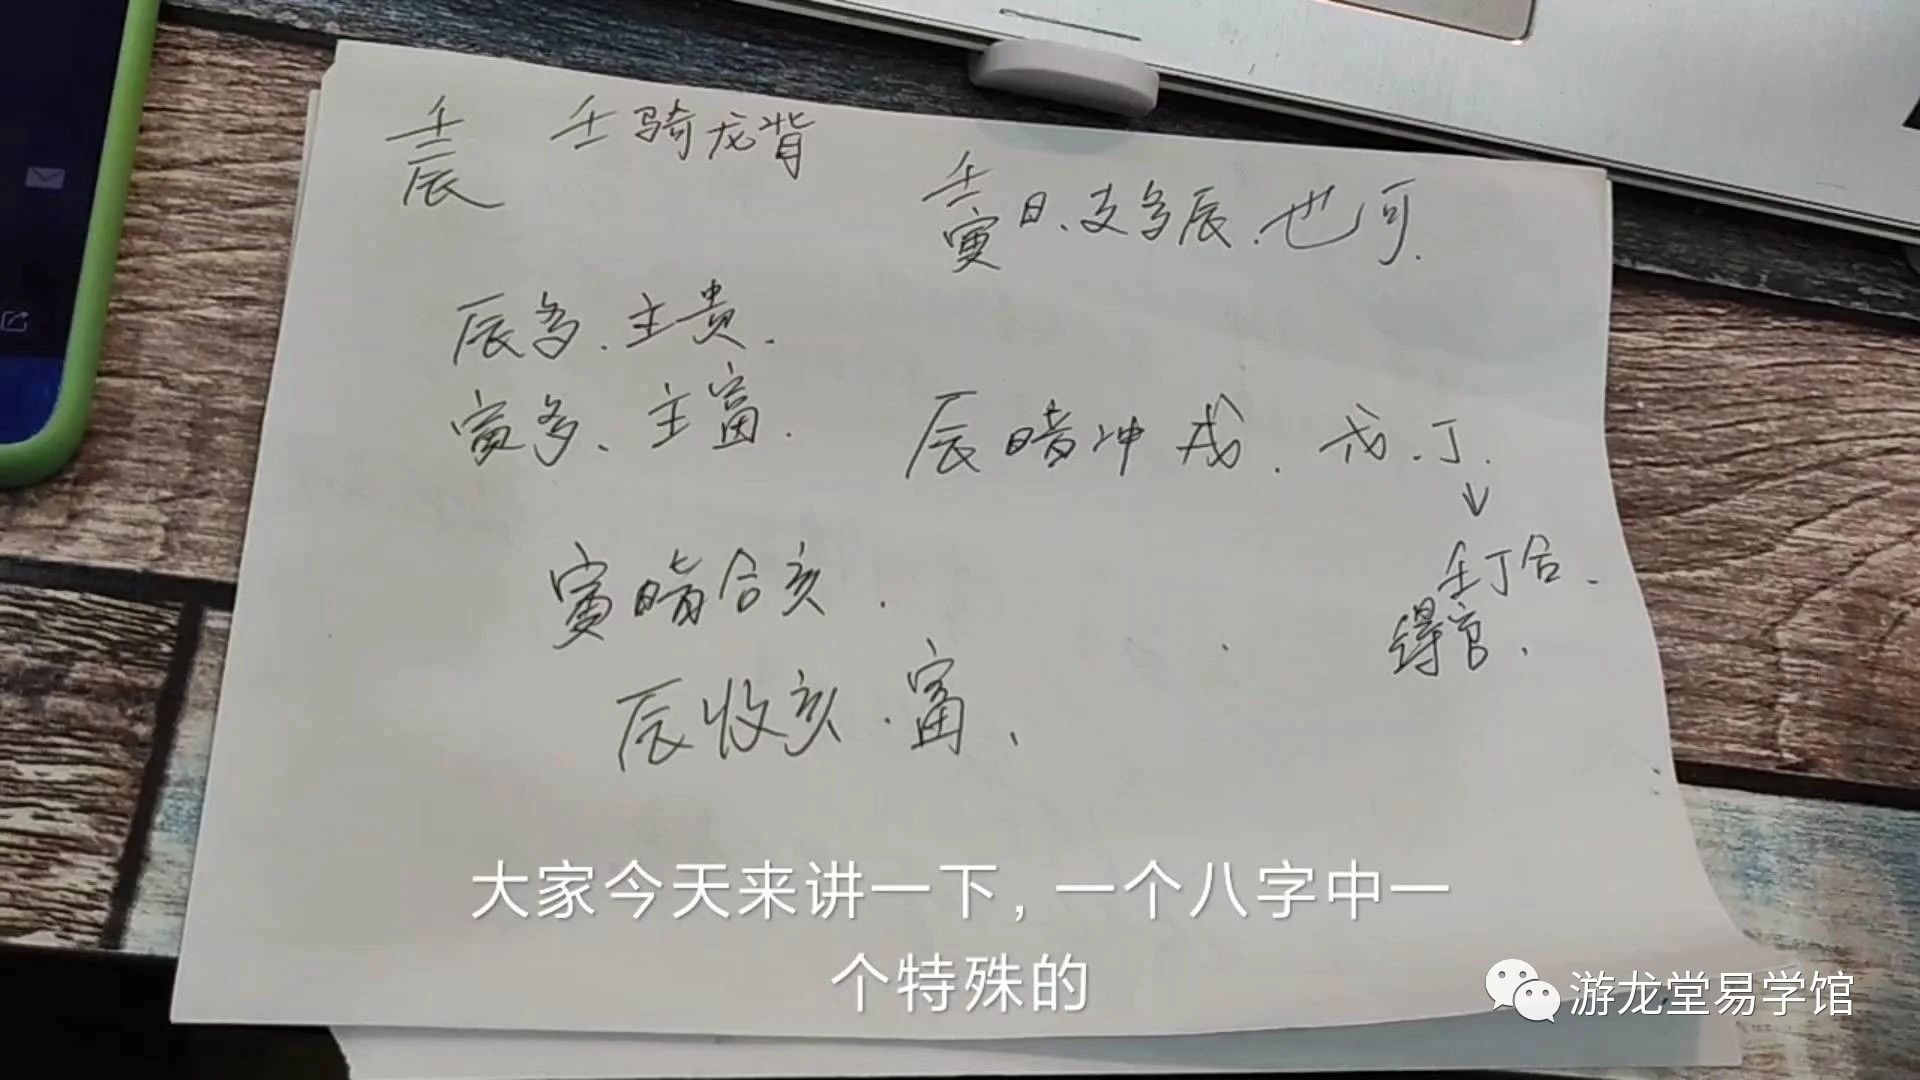 壬辰 壬骑龙背
壬寅日、支多辰、也可.
辰多、主贵.
寅多、主富.
辰暗冲戌. 戊.丁.
↓
壬丁合.
得官.
寅暗合亥.
辰收亥.富、
大家今天来讲一下,一个八字中一
个特殊的
游龙堂易学馆